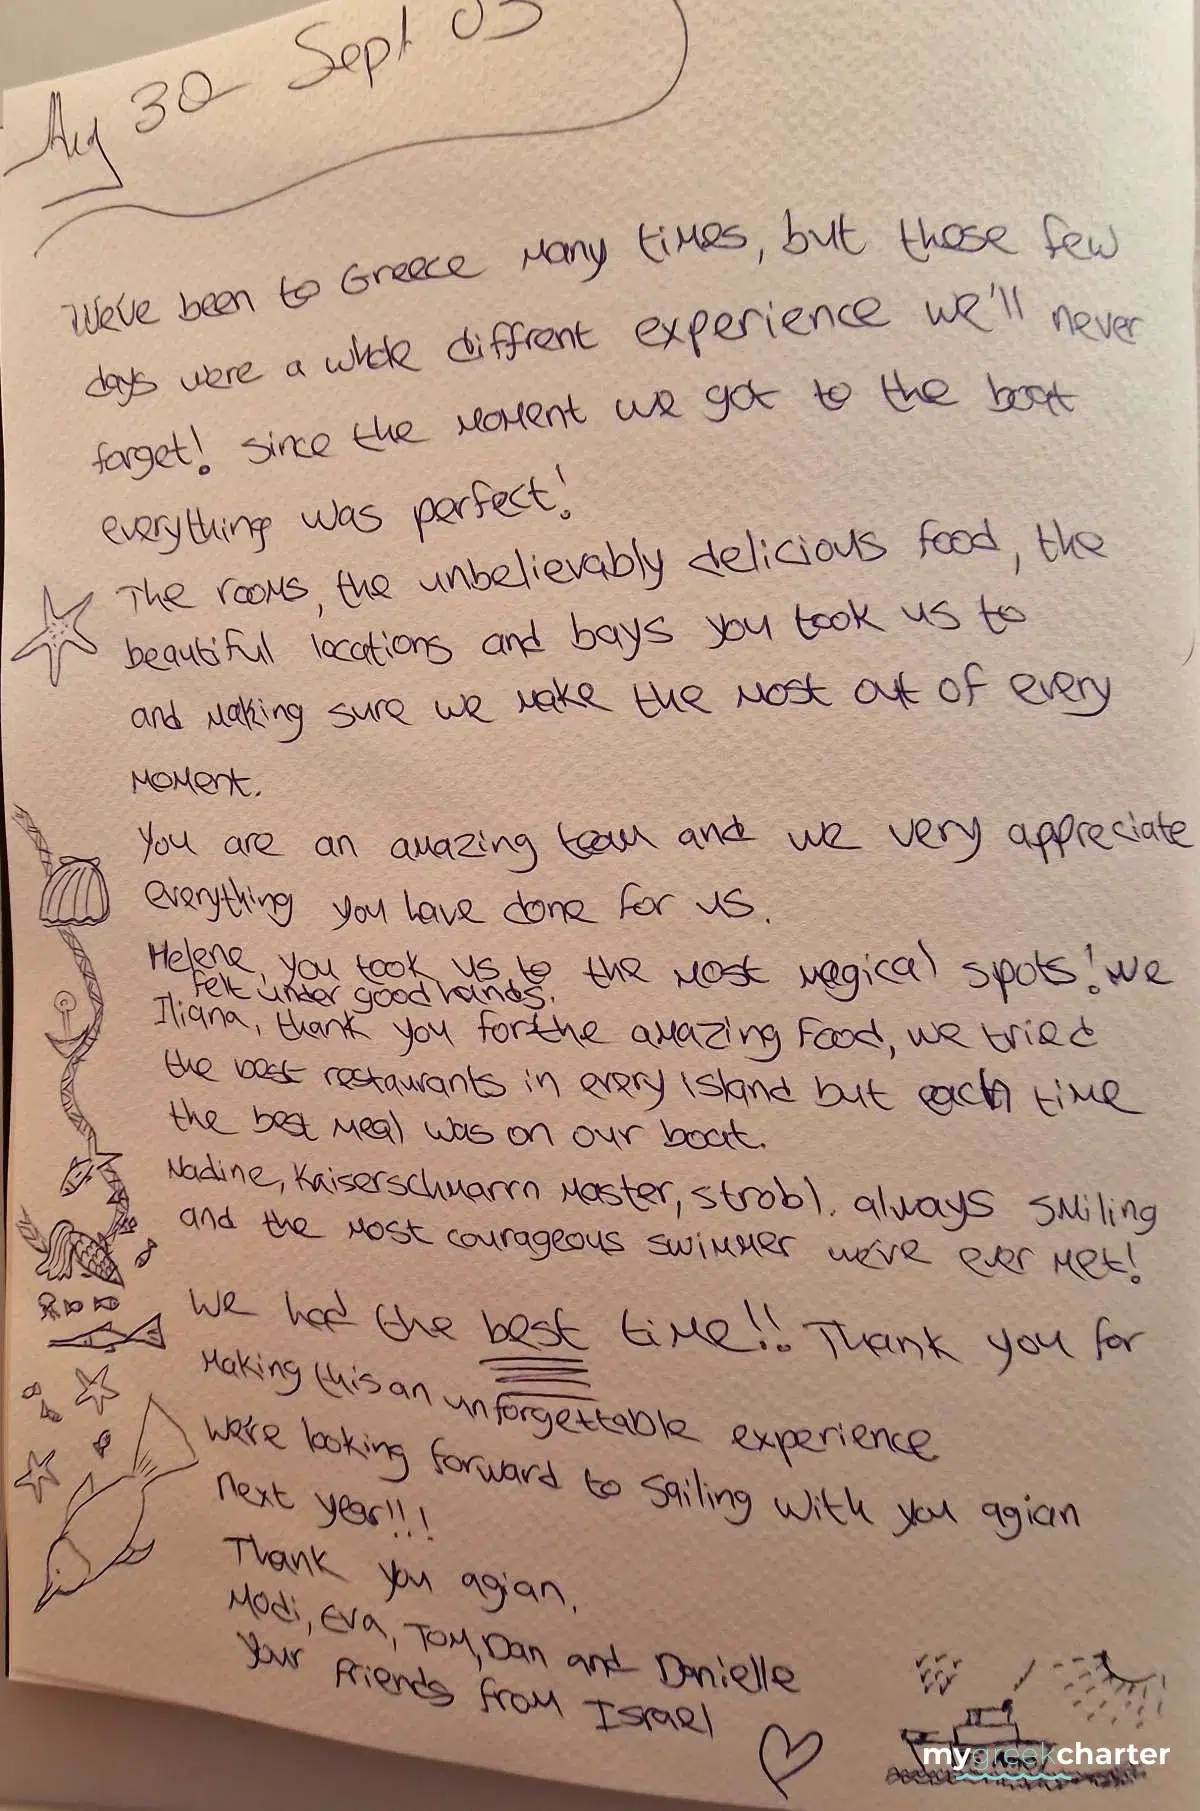 Aug 30 - Sept 03
We've been to Greece many times, but those few
days were a whole diffrent experience we'll never
forget! since the moment we got to the boat
everything was perfect!
The rooms, the unbelievably delicious food, the
beautiful locations and bays you took us to
and making sure we make the most out of every
moment.
You are an amazing team and we very appreciate
everything you have done for us.
Helene, you took us to the most magical spots! We
felt under good hands.
Iliana, thank you for the amazing food, we tried
the best restaurants in every island but each time
the best meal was on our boat.
Nadine, Kaiserschmarrn Master, strobl. always smiling
and the most courageous swimmer we've ever met!
We had the best time!! Thank you for
making this an unforgettable experience
We're looking forward to sailing with you agian
next year!!!
Thank you agian,
Modi, Eva, Tom, Dan and Danielle
your friends from Israel
mygreekcharter